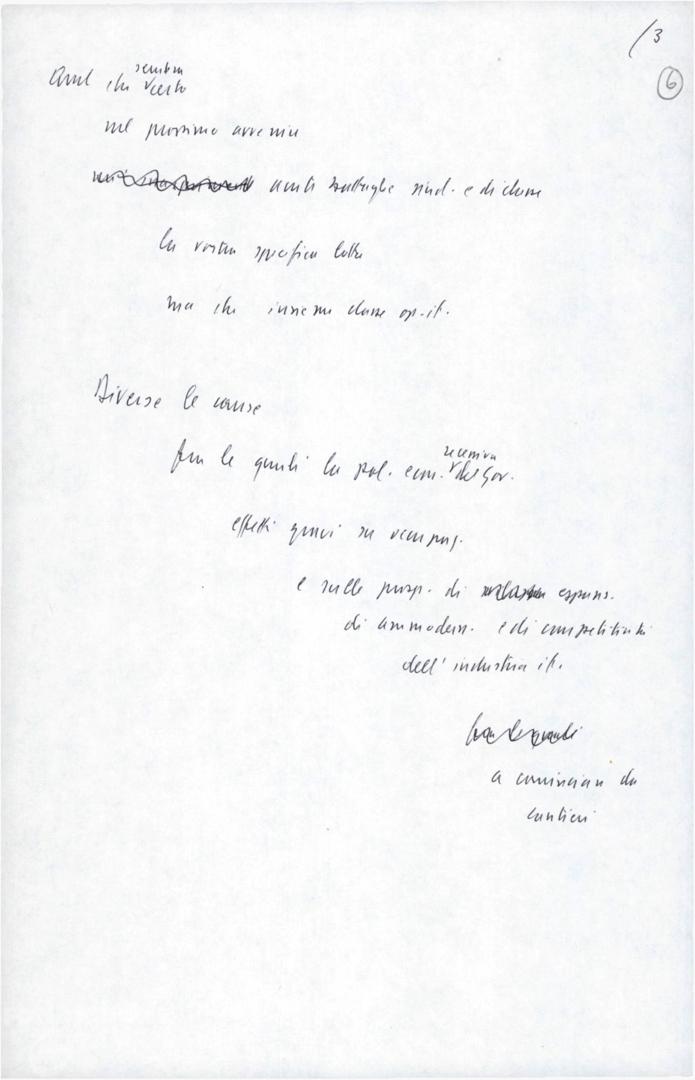 /3
6
Quel che sembra certo
nel prossimo avvenire
aventi battaglie sind. e di classe
la vostra specifica lotta
ma che insieme classe op. it.
Diverse le cause
fra le quali la pol. econ. recessiva del Gov.
effetti gravi su occupaz.
e sulle prosp. di espans.
di ammodern. e di competitività
dell'industria it.
a cominciare da
cantieri